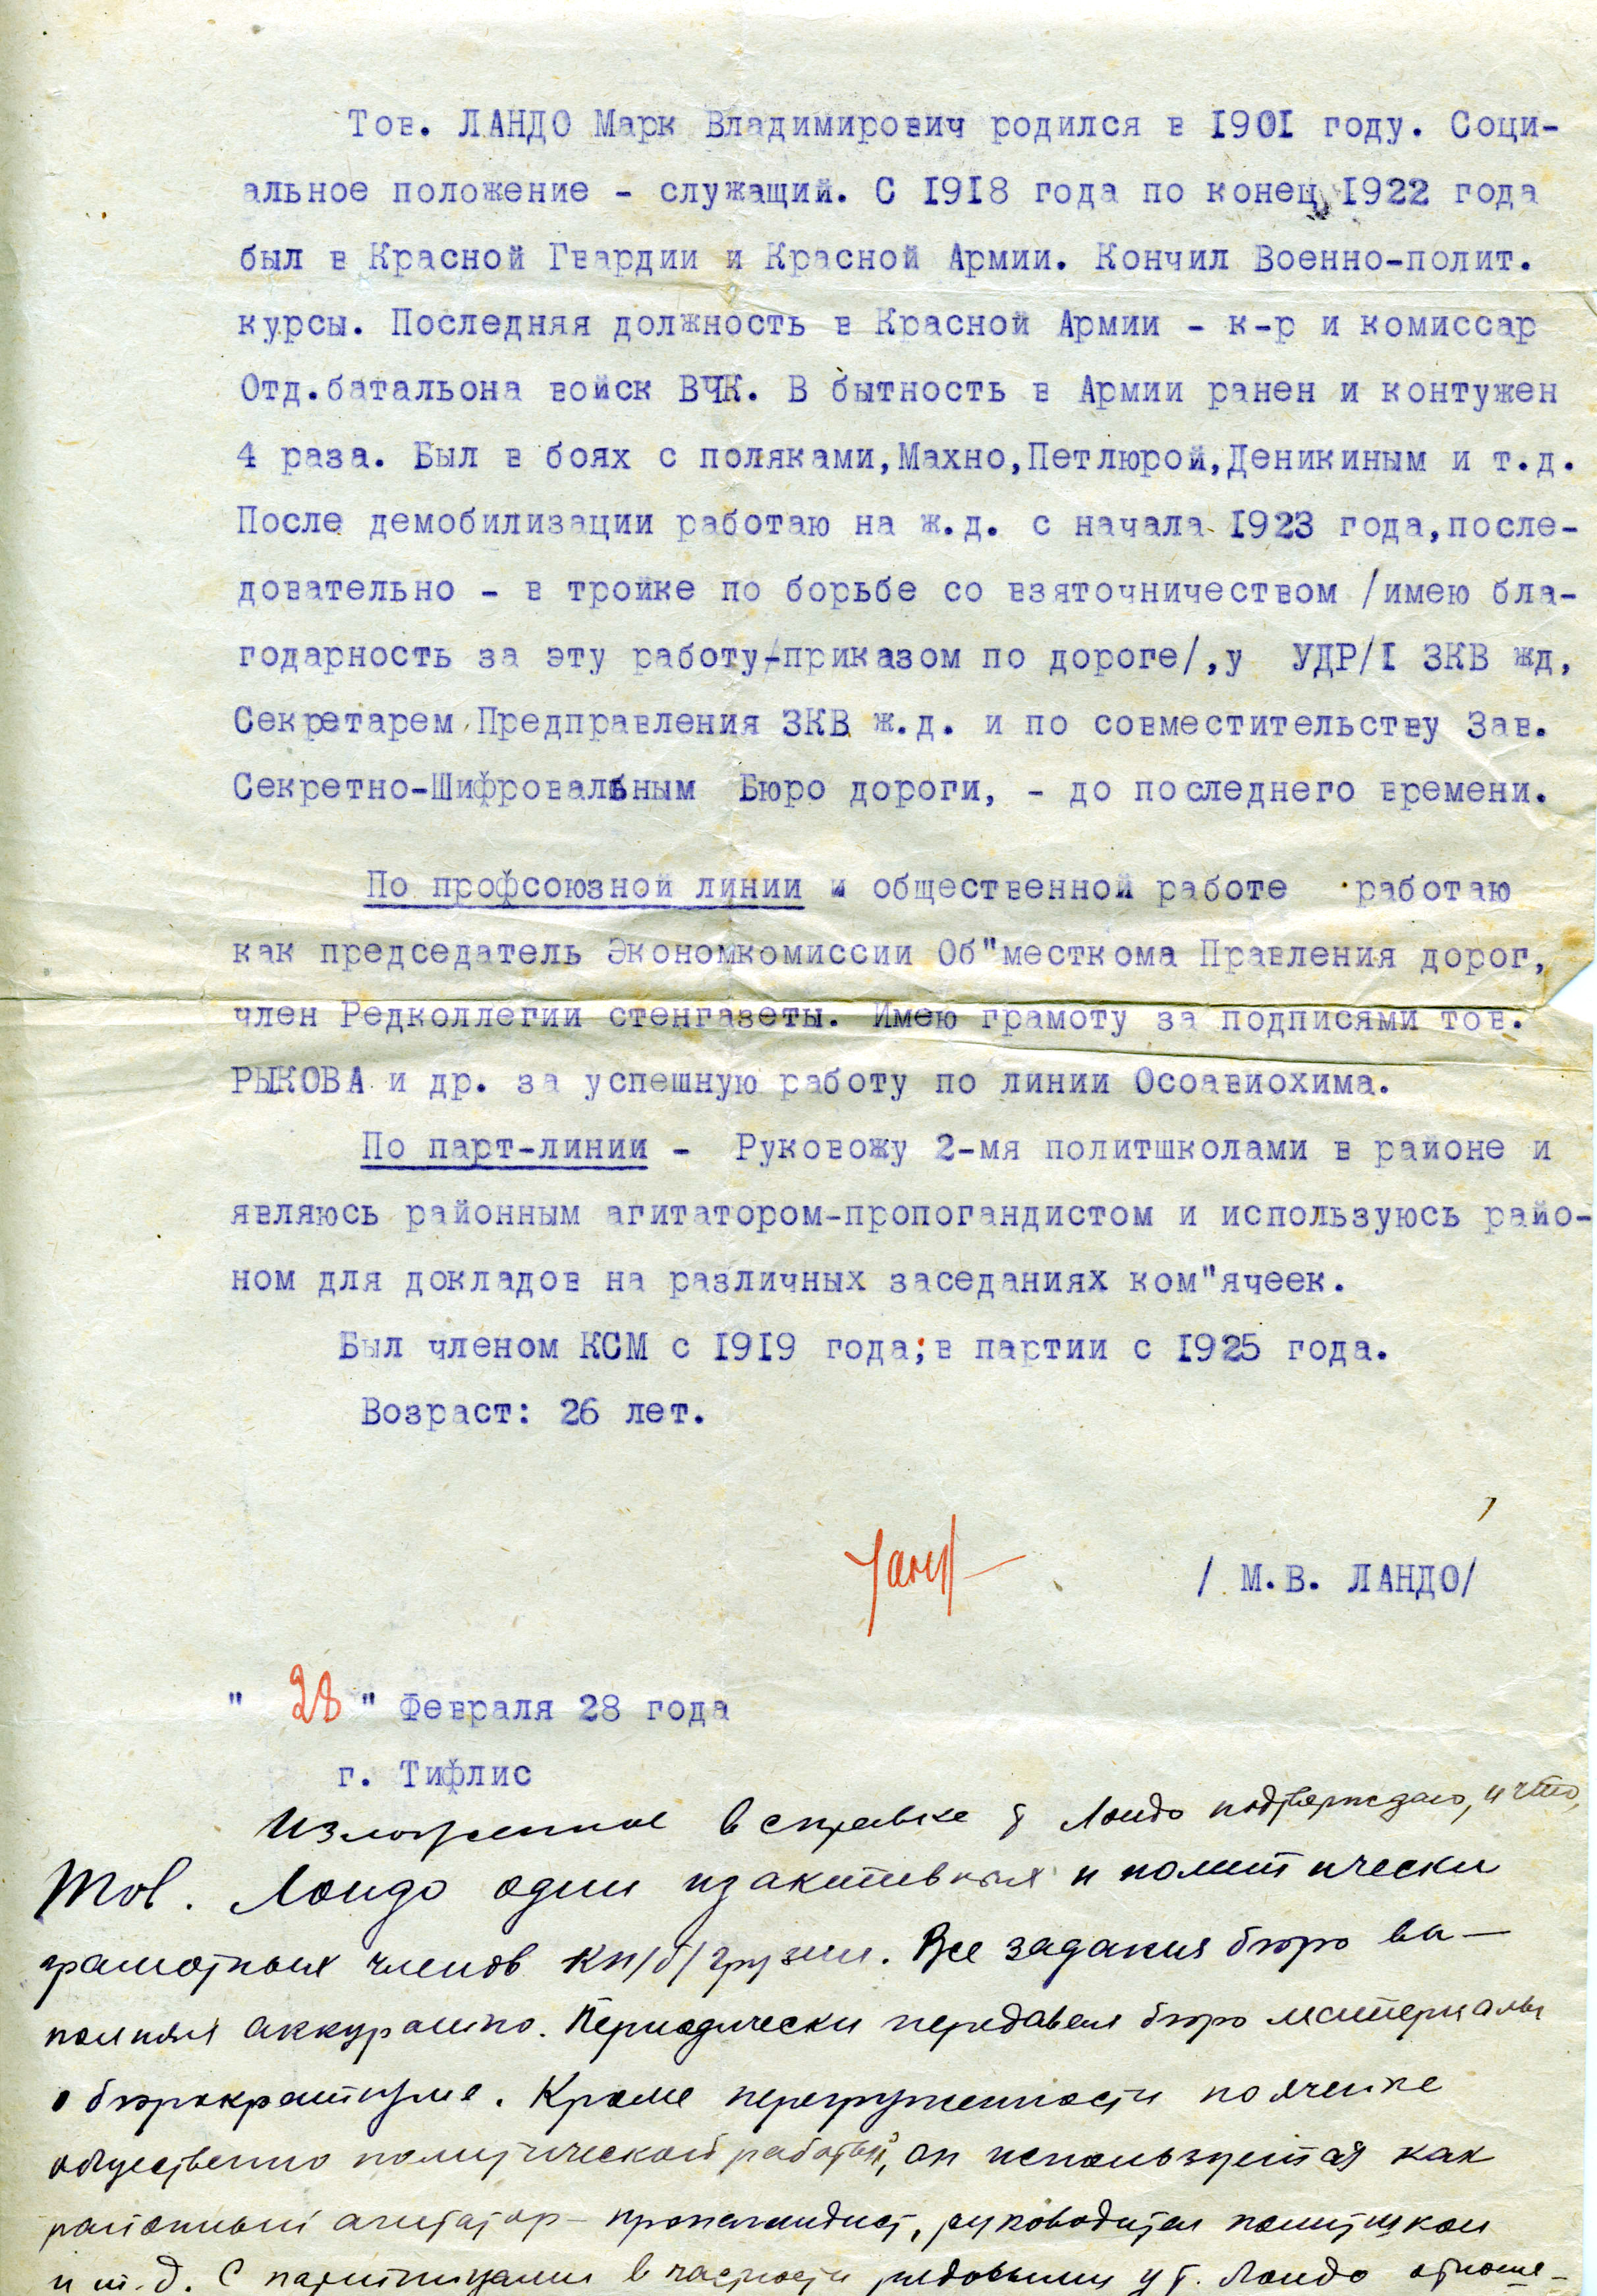 Тов. ЛАНДО Марк Владимирович родился в 1901 году. Соци-
альное положение - служащий. С 1918 года по конец 1922 года
был в Красной Гвардии и Красной Армии. Кончил Военно-полит.
курсы. Последняя должность в Красной Армии - к-р и комиссар
Отд.батальона войск ВЧК. В бытность в Армии ранен и контужен
4 раза. Был в боях с поляками,Махно,Петлюрой,Деникиным и т.д.
После демобилизации работаю на ж.д. с начала 1923 года,после-
довательно - в тройке по борьбе со взяточничеством /имею бла-
годарность за эту работу-приказом по дороге/,у УДР/I ЗКВ жд,
Секретарем Предправления ЗКВ ж.д. и по совместительству Зав.
Секретно-Шифровальным Бюро дороги, - до последнего времени.
По профсоюзной линии и общественной работе работаю
как председатель Экономкомиссии Об"месткома Правления дорог,
член Редколлегии стенгазеты. Имею грамоту за подписями тов.
РЫКОВА и др. за успешную работу по линии Осоавиохима.
По парт-линии - Руковожу 2-мя политшколами в районе и
являюсь районным агитатором-пропогандистом и используюсь райо-
ном для докладов на различных заседаниях ком"ячеек.
Был членом КСМ с 1919 года;в партии с 1925 года.
Возраст: 26 лет.
/ М.В. ЛАНДО/
" 28 " Февраля 28 года
г. Тифлис
Изложенное в справке т Ландо подтверждаю, и что,
Тов. Ландо один из активных и политически
грамотных членов КП/б/Грузии. Все задания бюро вы-
полнял аккуратно. Периодически передавал бюро материалы
о бюрократизме. Кроме перегруженности по ячейке
общественно политической работой, он используется как
районный агитатор-пропагандист, руководител политшкол
и т.д. С партийцами в частности рядовыми у т. Ландо отноше-